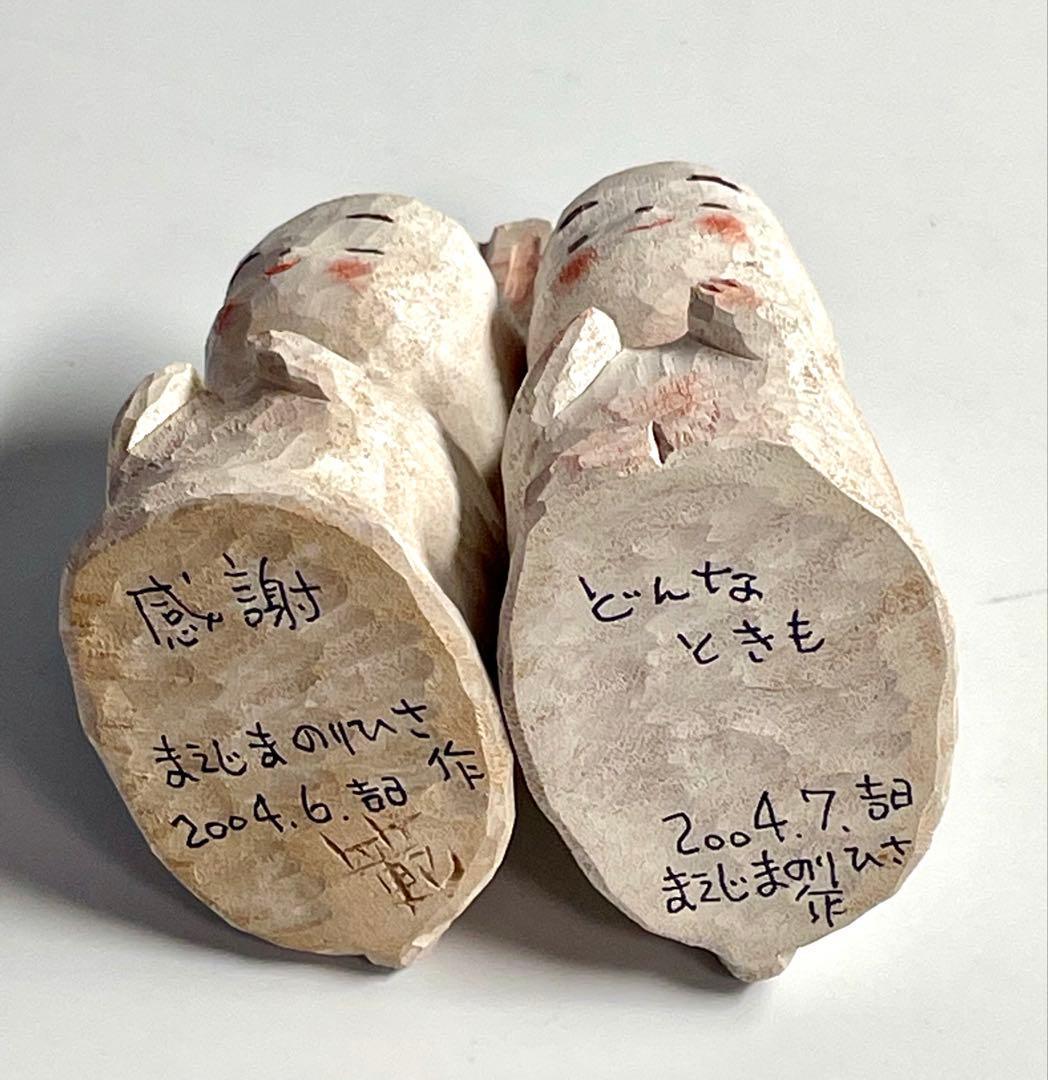 感謝
まえじまのりひさ
作
2004.6.吉日
どんな
ときも
2004.7.吉日
まえじまのりひさ
作